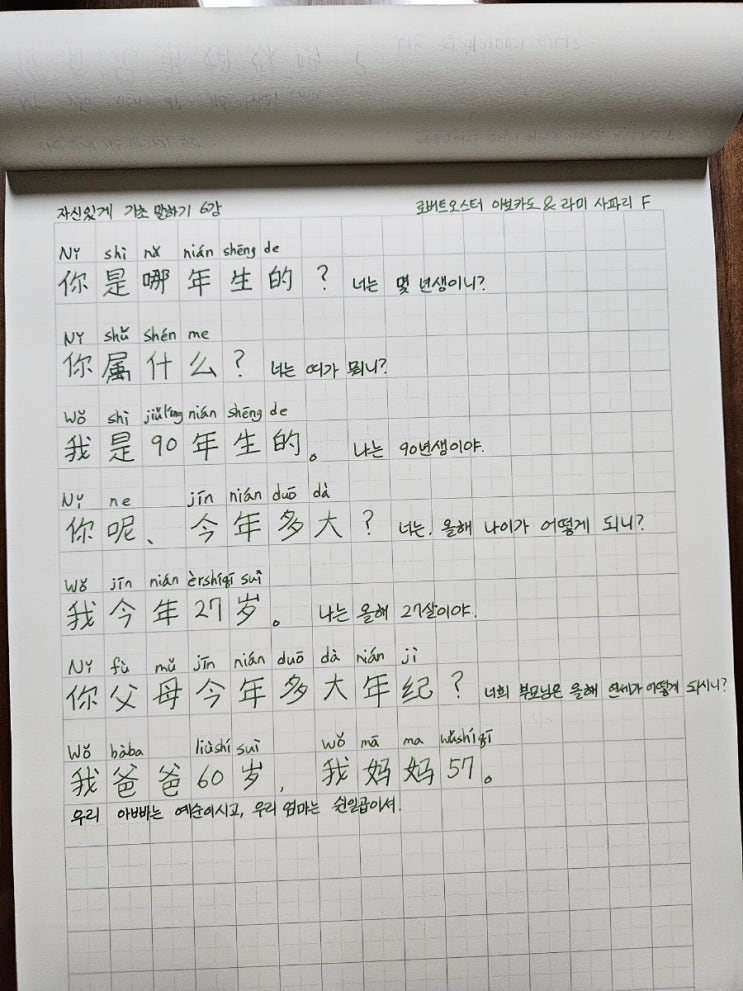 자신있게 기초 말하기 6강 로버트오스터 아보카도 & 라미 사파리 F
Nǐ shì nǎ nián shēng de
你是哪年生的? 너는 몇 년생이니?
Nǐ shǔ shén me
你属什么? 너는 띠가 뭐니?
Wǒ shì jiǔlíng nián shēng de
我是90年生的。 나는 90년생이야.
Nǐ ne jīn nián duō dà
你呢、今年多大? 너는, 올해 나이가 어떻게 되니?
Wǒ jīn nián èrshíqī suì
我今年27岁。 나는 올해 27살이야.
Nǐ fù mǔ jīn nián duō dà nián jì
你父母今年多大年纪? 너희 부모님은 올해 연세가 어떻게 되시니?
Wǒ bàba liùshí suì wǒ mā ma wǔshíqī
我爸爸60岁, 我妈妈57。
우리 아빠는 예순이시고, 우리 엄마는 쉰일곱이셔.